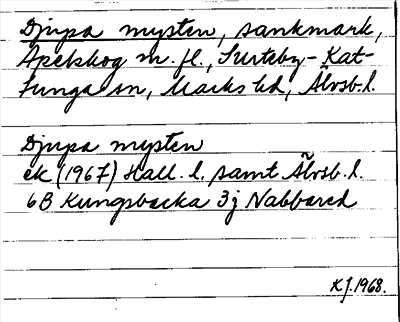 Djupa mysten, sankmark,
Apelskog m. fl., Surteby-Kat-
tunga sn, Marks hd, Älvsb.l.
Djupa mysten
ek (1967) Hall. l. samt Älvsb. l.
6B Kungsbacka 3j Nabbared
KJ. 1968.